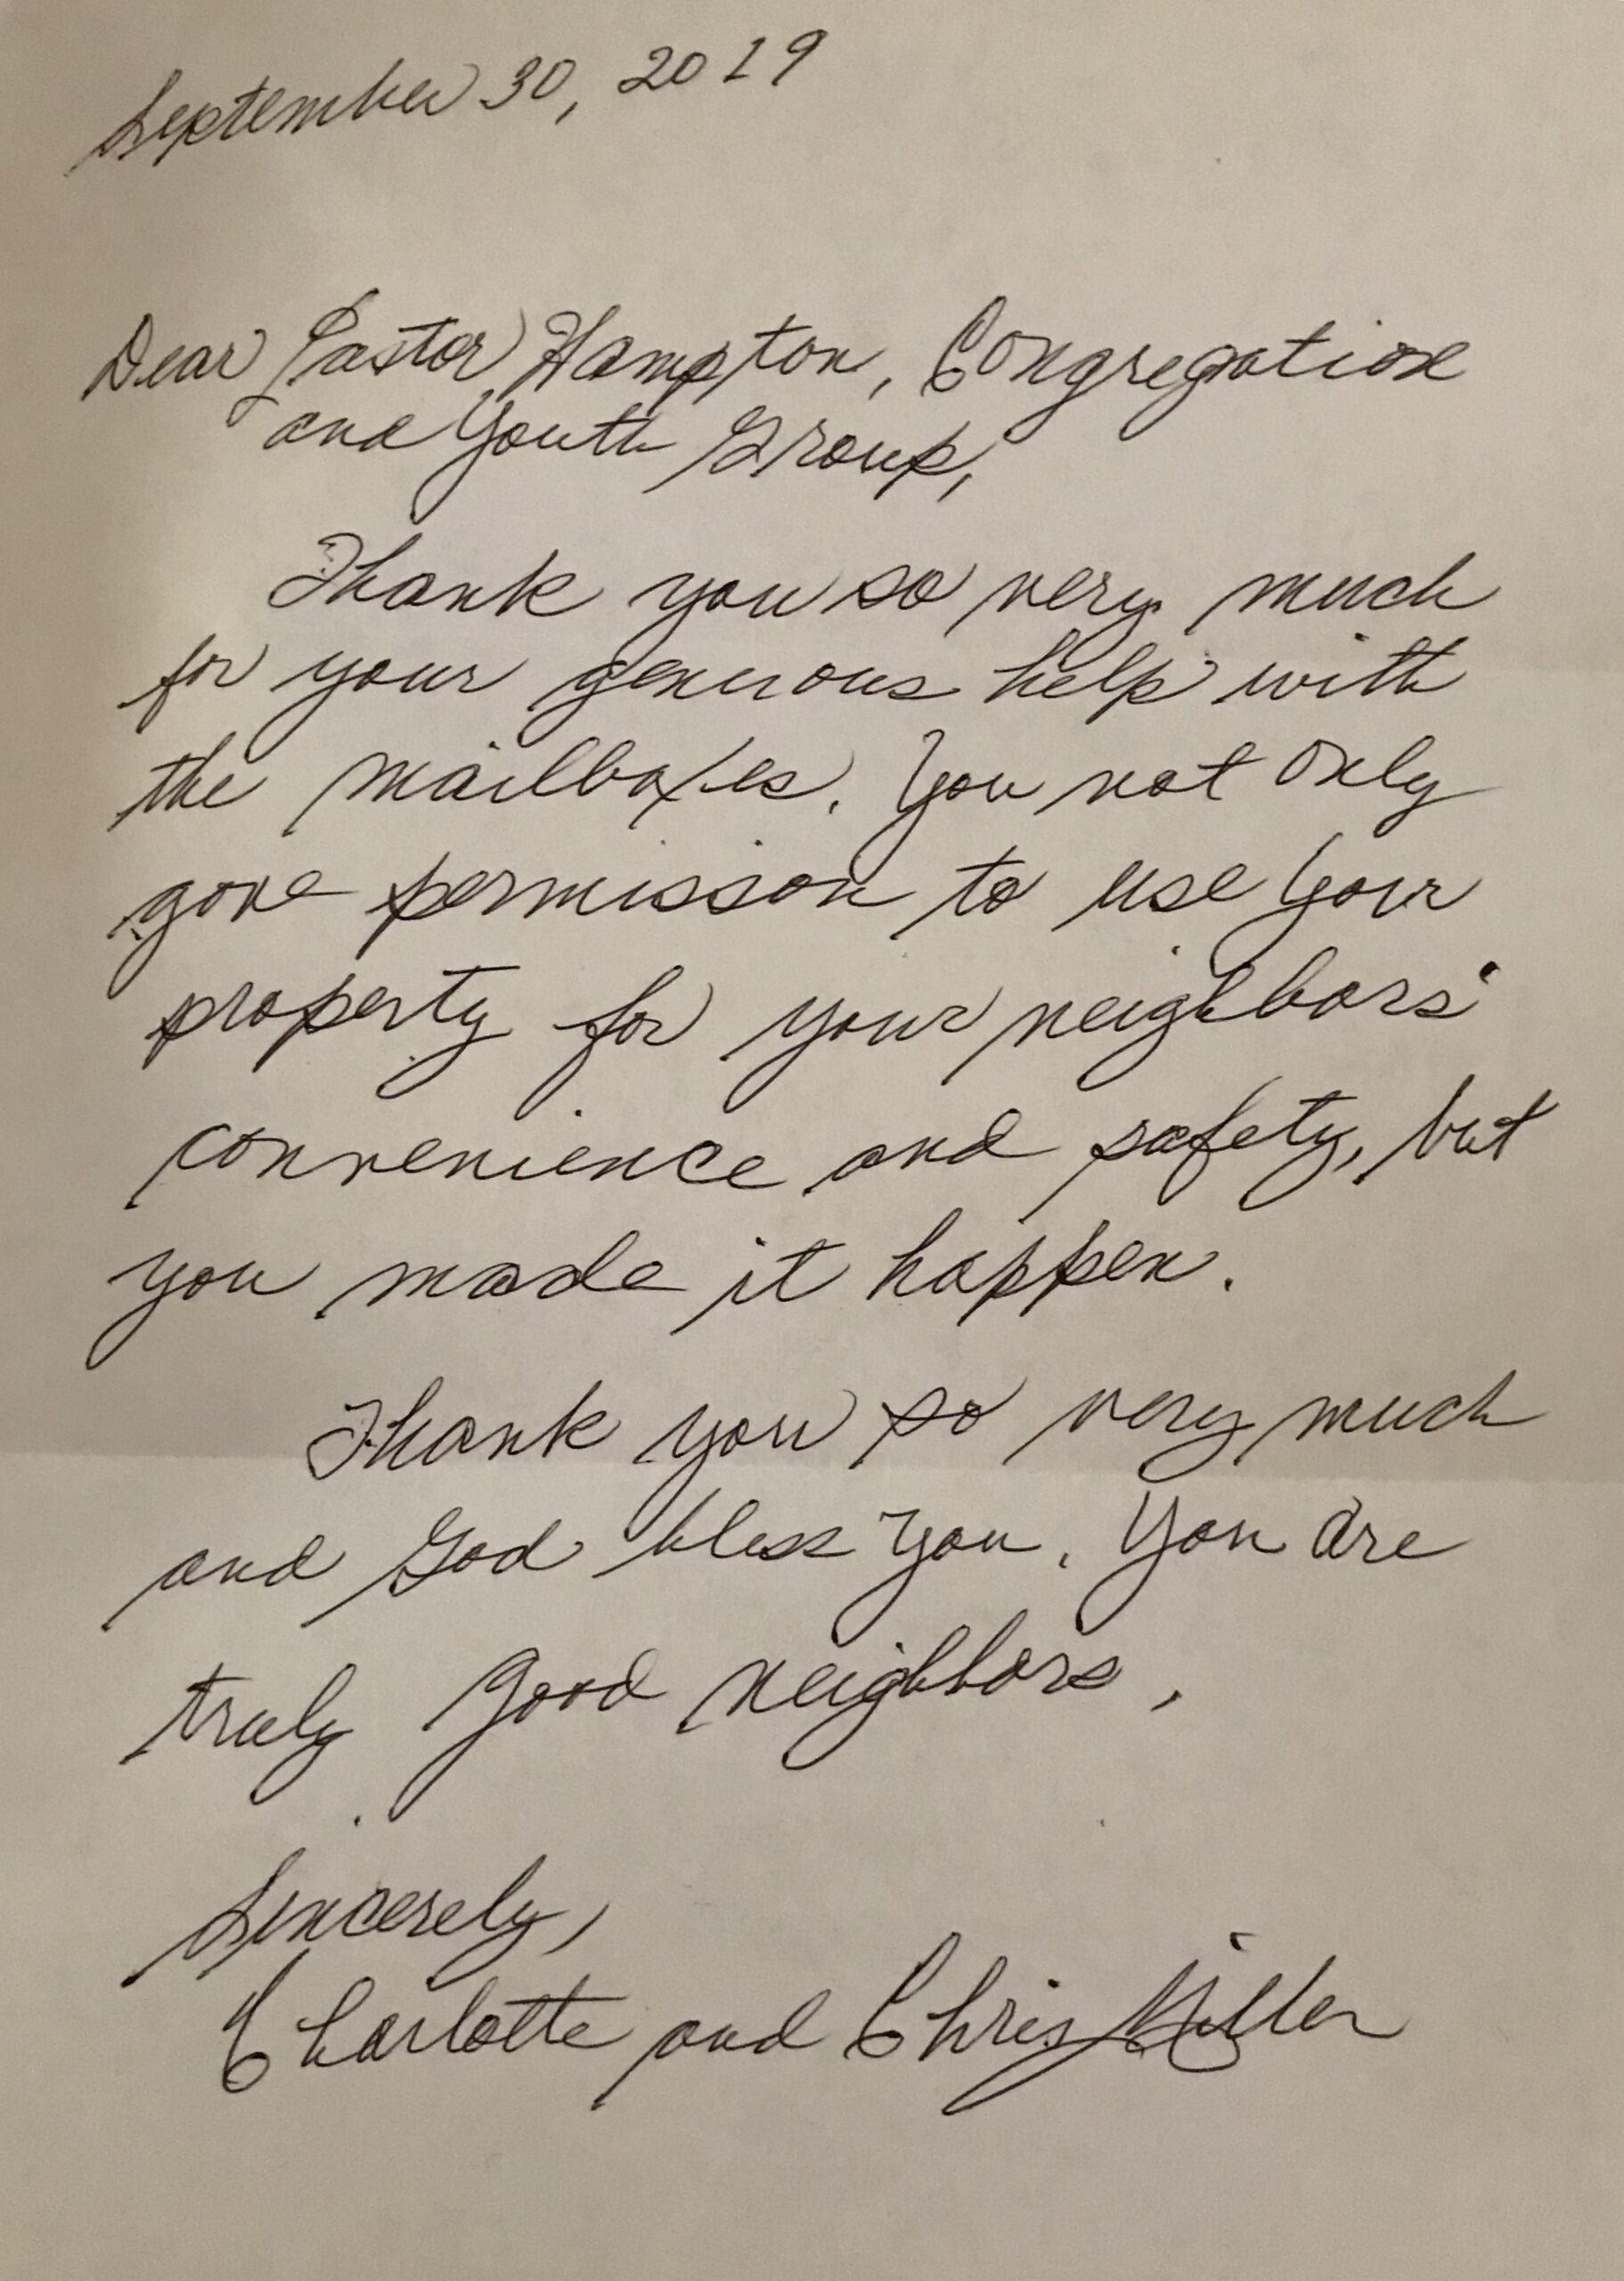 September 30, 2019
Dear Pastor Hampton, Congregation
and Youth Group,
Thank you so very much
for your generous help with
the mailboxes. You not only
gave permisson to use your
property for your neighbors'
convenience and safety, but
you made it happen.
Thank you so very much
and God bless you. You are
truly good neighbors.
Sincerely,
Charlotte and Chris Miller